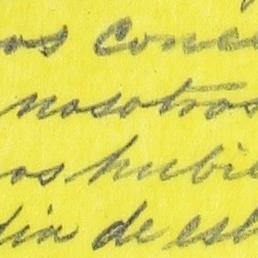 os conce
nosotros
os hubie
din de est